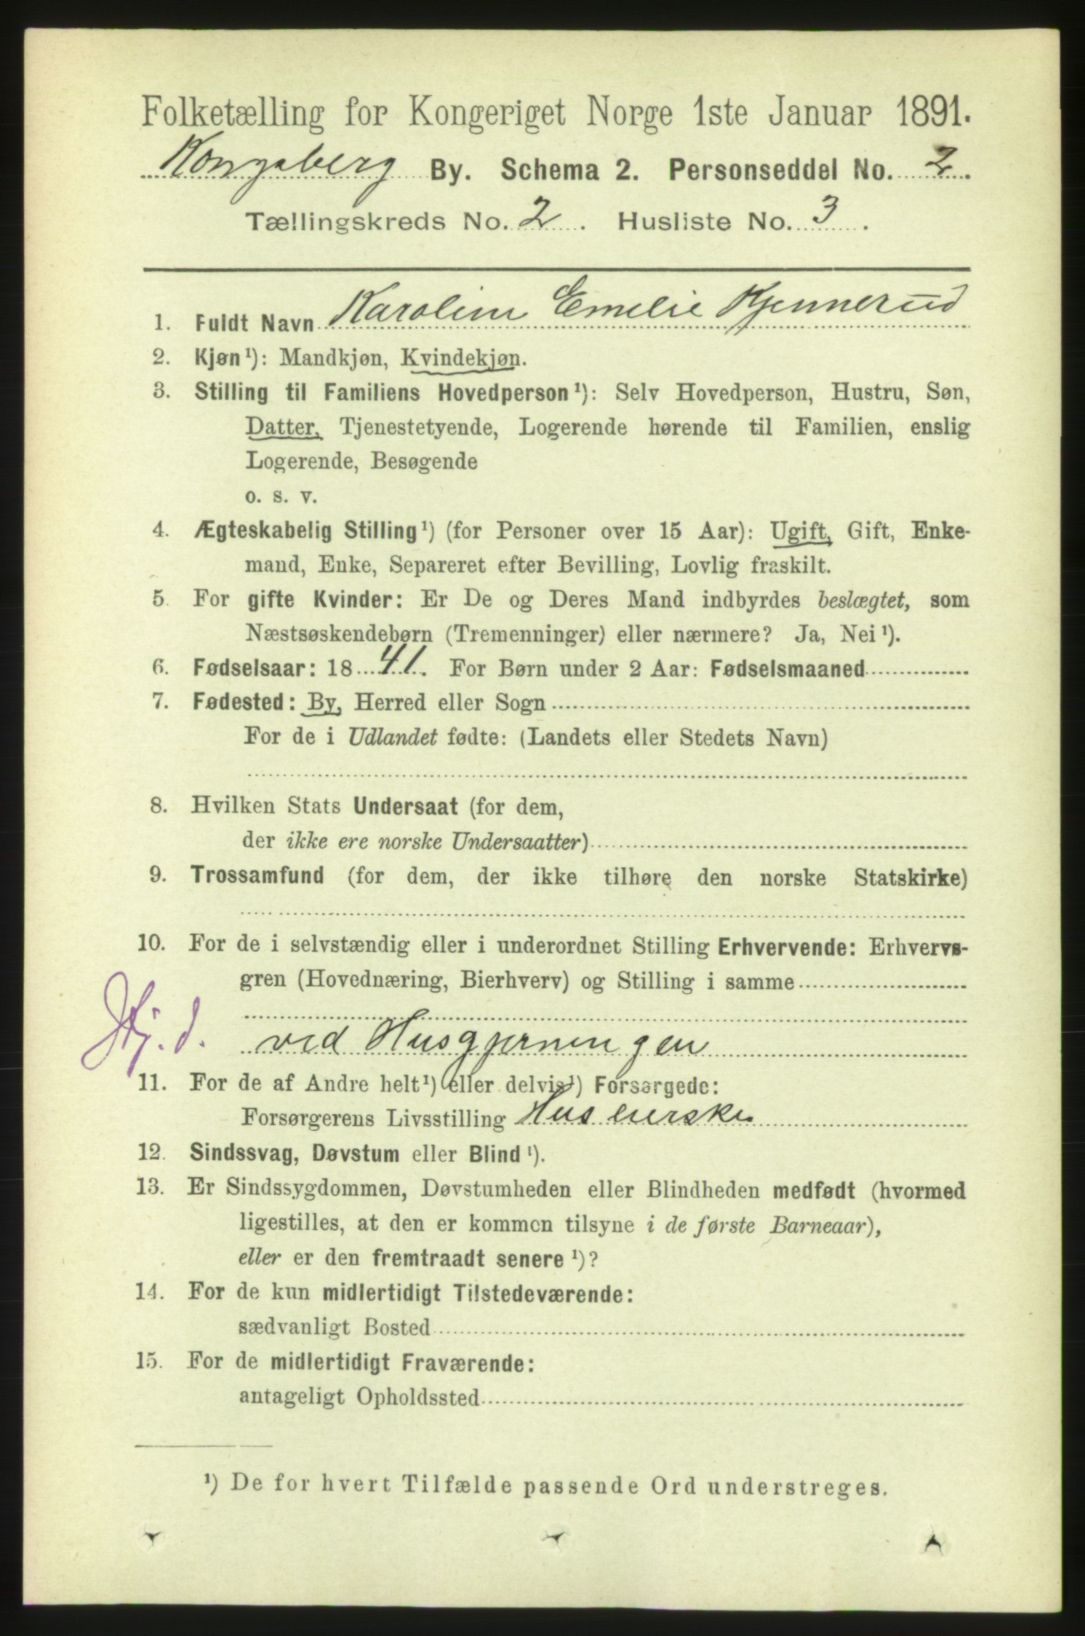 Folketælling for Kongeriget Norge 1ste Januar 1891.
Kongsberg By. Schema 2. Personseddel No. 2.
Tællingskreds No. 2. Husliste No. 3.
1. Fuldt Navn Karoline Emelie Kjennerud
2. Kjøn ¹): Mandkjøn, Kvindekjøn.
3. Stilling til Familiens Hovedperson ¹): Selv Hovedperson, Hustru, Søn,
Datter, Tjenestetyende, Logerende hørende til Familien, enslig
Logerende, Besøgende
o. s. v.
4. Ægteskabelig Stilling ¹) (for Personer over 15 Aar): Ugift, Gift, Enke-
mand, Enke, Separeret efter Bevilling, Lovlig fraskilt.
5. For gifte Kvinder: Er De og Deres Mand indbyrdes beslægtet, som
Næstsøskendebørn (Tremenninger) eller nærmere? Ja, Nei ¹).
6. Fødselsaar: 1841. For Børn under 2 Aar: Fødselsmaaned
7. Fødested: By, Herred eller Sogn
For de i Udlandet fødte: (Landets eller Stedets Navn)
8. Hvilken Stats Undersaat (for dem,
der ikke ere norske Undersaatter)
9. Trossamfund (for dem, der ikke tilhøre den norske Statskirke)
10. For de i selvstændig eller i underordnet Stilling Erhvervende: Erhvervs-
gren (Hovednæring, Bierhverv) og Stilling i samme
Hj. d. ved Husgjerningen
11. For de af Andre helt ¹) eller delvis ¹) Forsørgede:
Forsørgerens Livsstilling Huseierske
12. Sindssvag, Døvstum eller Blind ¹).
13. Er Sindssygdommen, Døvstumheden eller Blindheden medfødt (hvormed
ligestilles, at den er kommen tilsyne i de første Barneaar),
eller er den fremtraadt senere ¹)?
14. For de kun midlertidigt Tilstedeværende:
sædvanligt Bosted
15. For de midlertidigt Fraværende:
antageligt Opholdssted
¹) De for hvert Tilfælde passende Ord understreges.